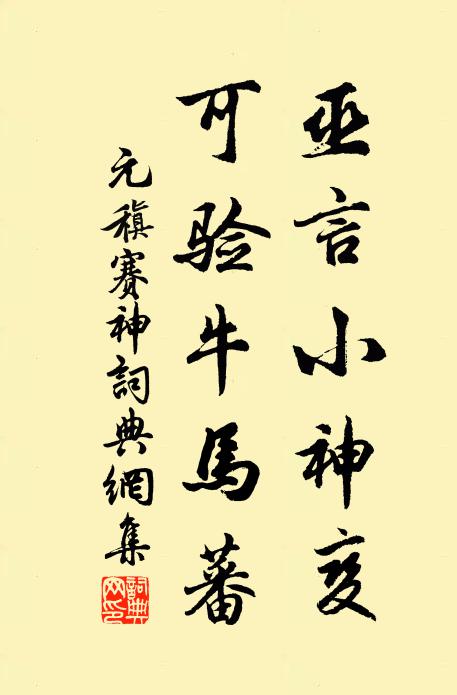 巫言小神变
可验牛馬蕃
元稹賽神詞典網集
詞典网印